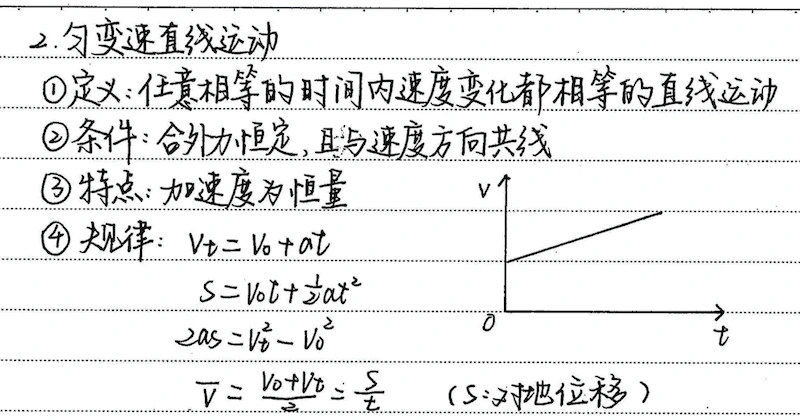 2.匀变速直线运动
①定义:任意相等的时间内速度变化都相等的直线运动
②条件:合外力恒定,且与速度方向共线
③特点:加速度为恒量
④规律: Vt=V0+at
S=V0t+½at²
2as=Vt²-V0²
V̅=(V0+Vt)/2=S/t (S:对地位移)
V
0
t